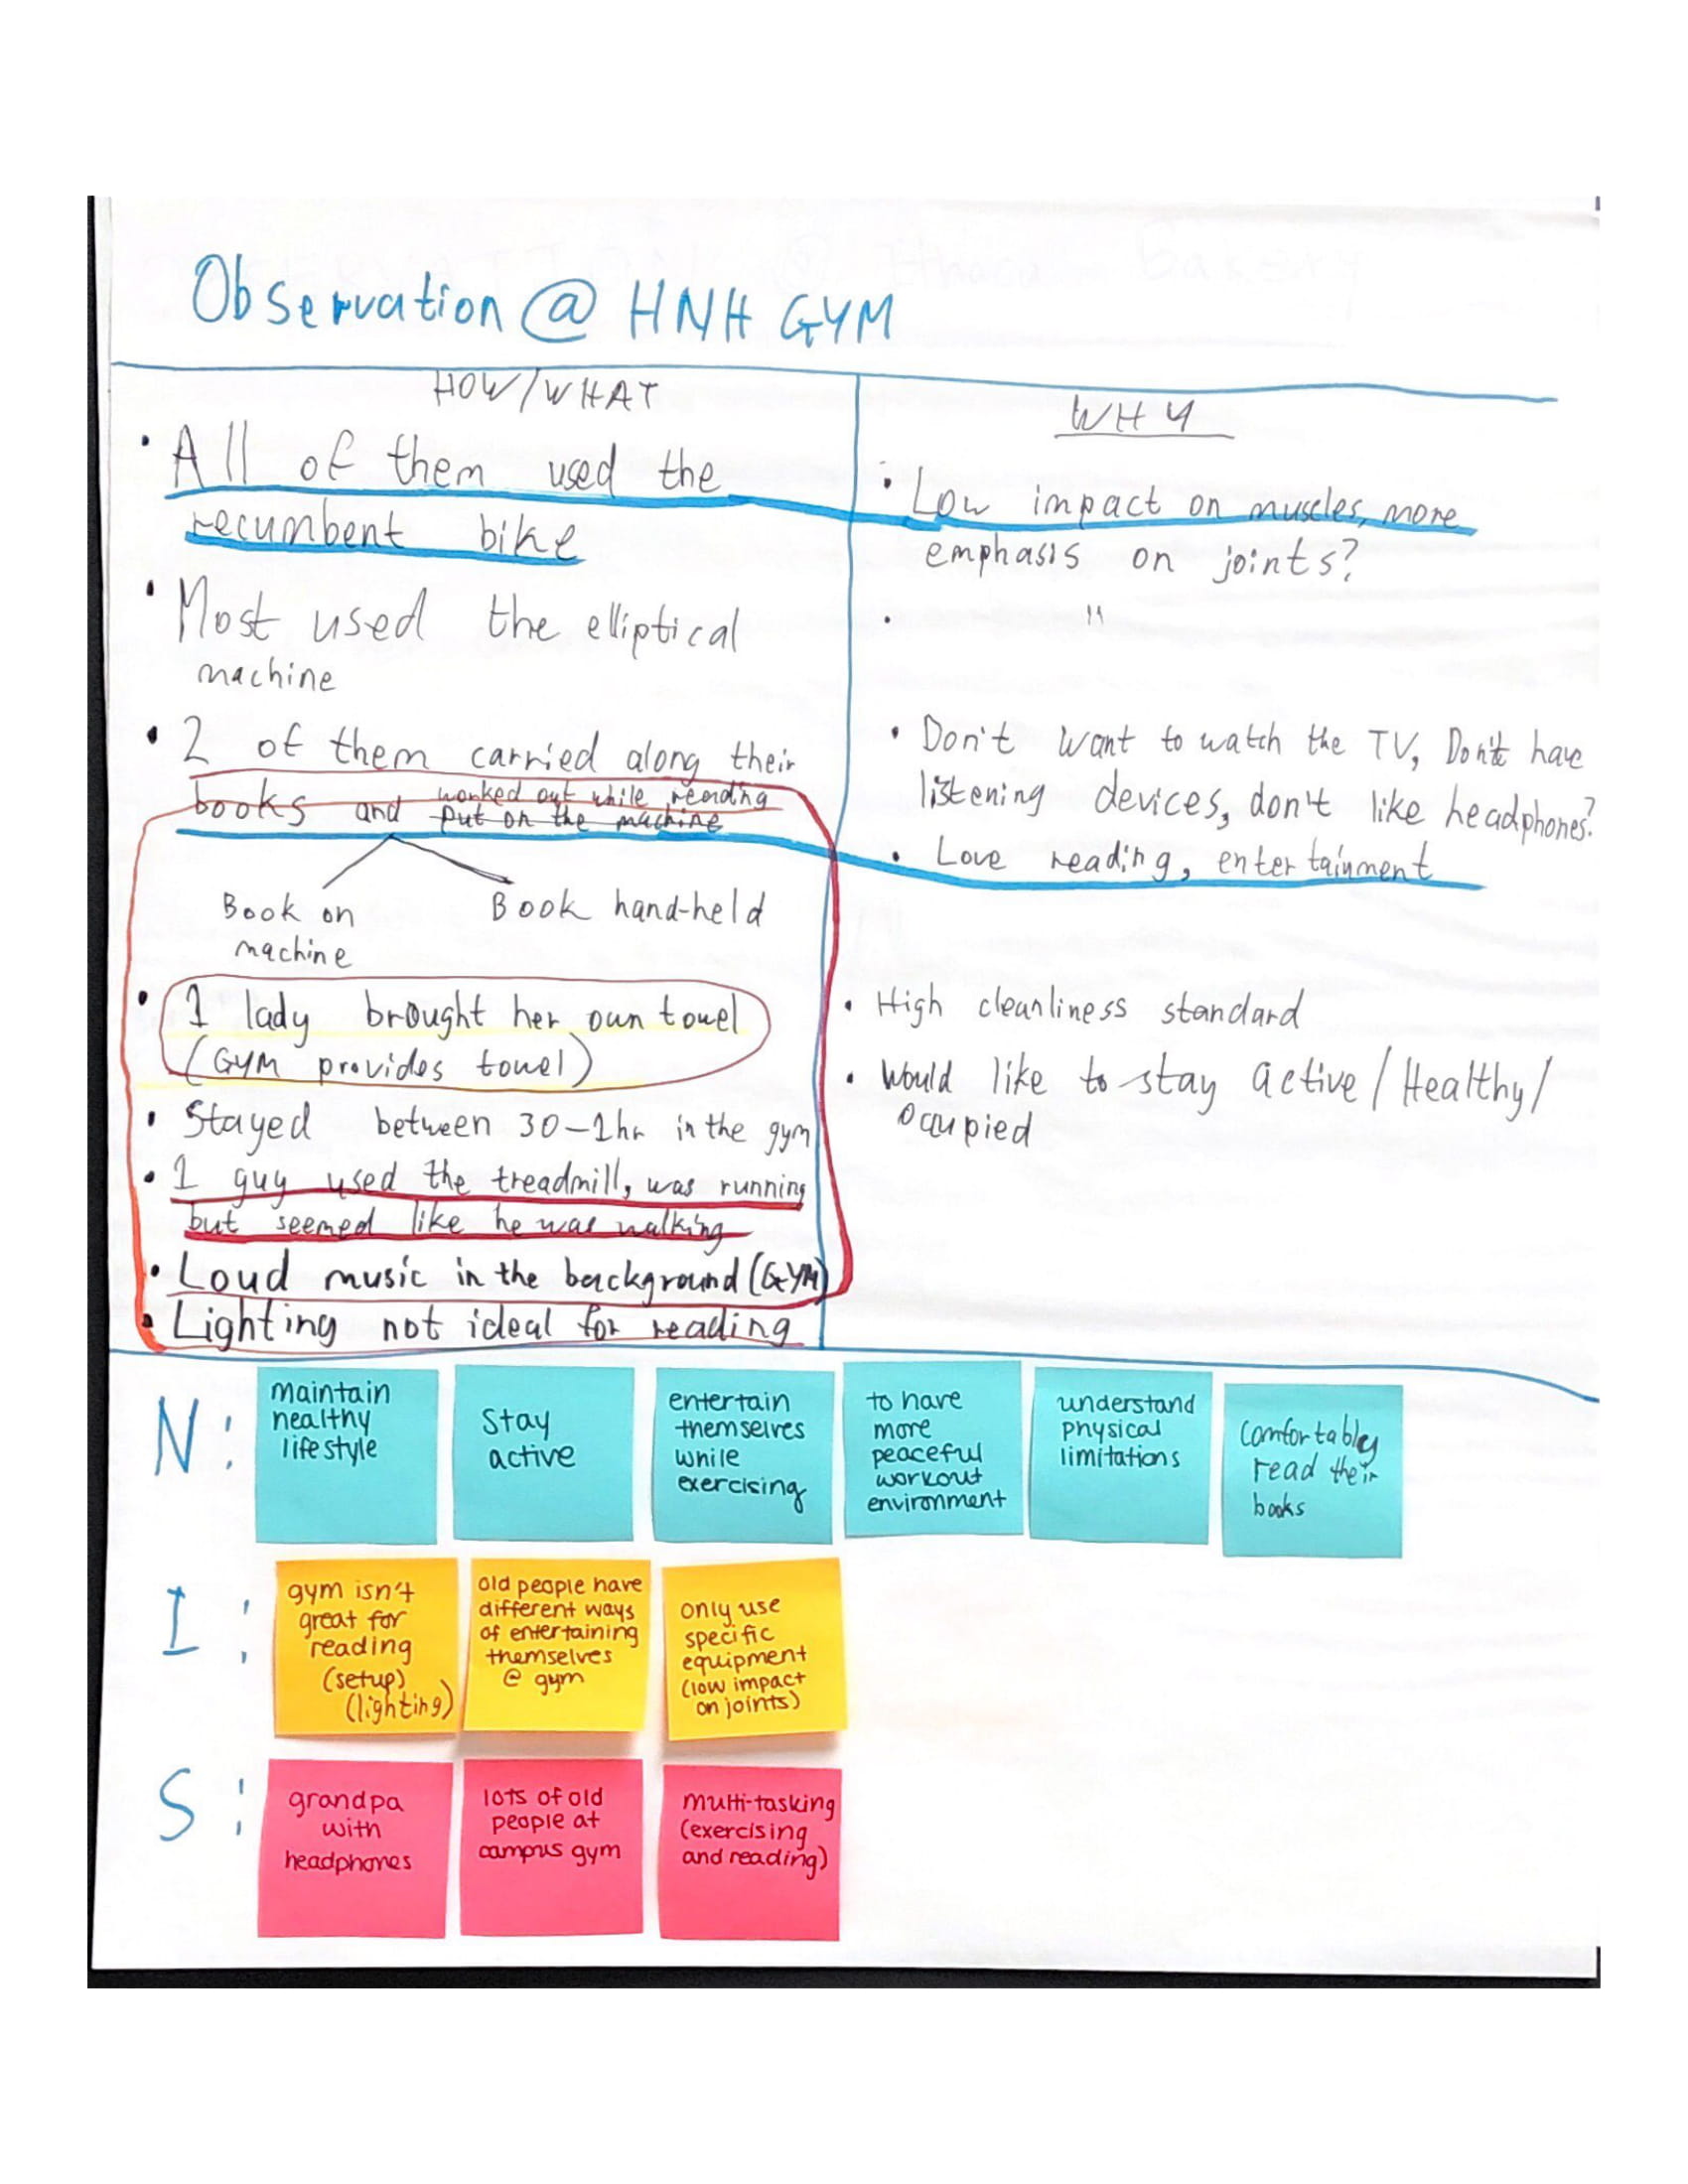 Observation @ HNH GYM
HOW/WHAT
• All of them used the
recumbent bike
• Most used the elliptical
machine
• 2 of them carried along their
books and worked out while reading
put on the machine
Book on
machine
Book hand-held
• 1 lady brought her own towel
(GYM provides towel)
• Stayed between 30-1hr in the gym
• 1 guy used the treadmill, was running
but seemed like he was walking
• Loud music in the background (GYM)
• Lighting not ideal for reading
WHY
• Low impact on muscles, more
emphasis on joints?
• "
• Don't want to watch the TV, Don't have
listening devices, don't like headphones?
• Love reading, entertainment
• High cleanliness standard
• Would like to stay active/Healthy/
Occupied
N:
maintain
healthy
lifestyle
Stay
active
entertain
themselves
while
exercising
to have
more
peaceful
workout
environment
understand
physical
limitations
Comfortably
read their
books
I:
gym isn't
great for
reading
(setup)
(lighting)
old people have
different ways
of entertaining
themselves
@ gym
only use
specific
equipment
(low impact
on joints)
S:
grandpa
with
headphones
lots of old
people at
campus gym
multi-tasking
(exercising
and reading)